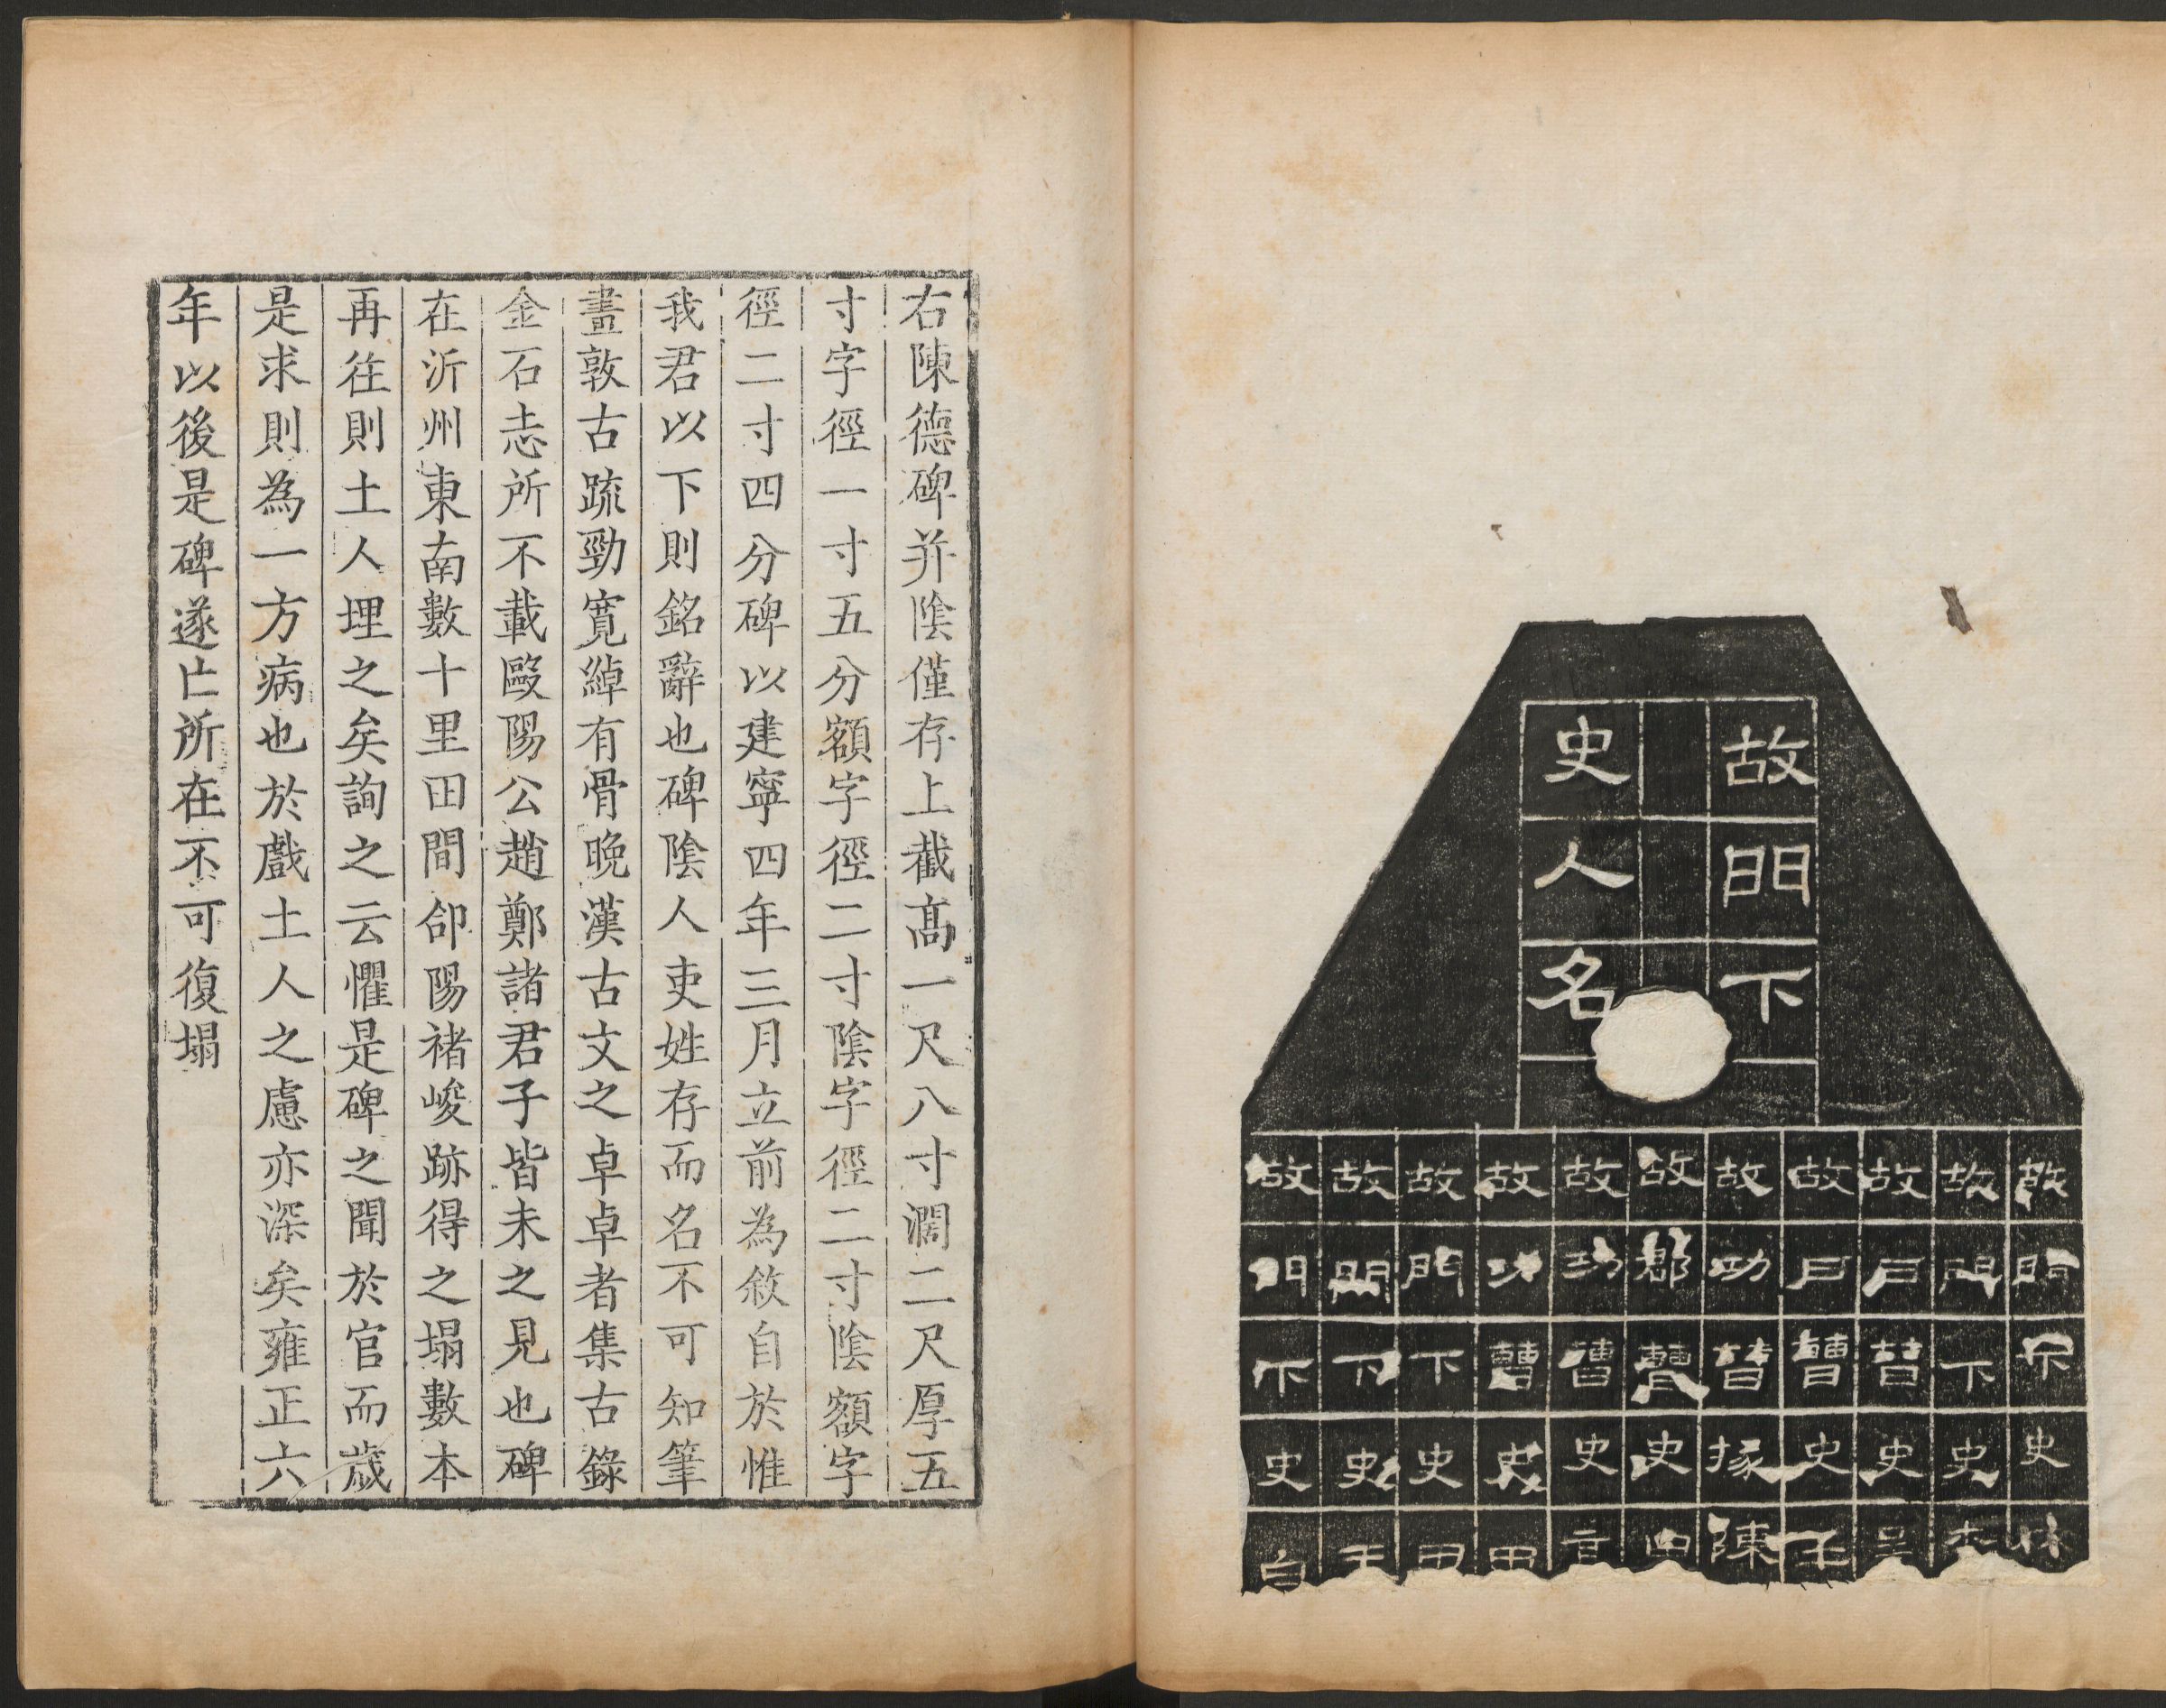 故門下
史人名
故門下史林
故門下史
故戶曹史
故戶曹史王
故功曹掾陳
故郡曹史
故功曹史
故功曹史
故門下史
故門下史王
故門下史
右陳德碑并陰僅存上截髙一尺八寸濶二尺厚五
寸字徑一寸五分額字徑二寸陰字徑二寸陰額字
徑二寸四分碑以建寧四年三月立前為敘自於惟
我君以下則銘辭也碑陰人吏姓存而名不可知筆
畫敦古疏勁寬綽有骨晚漢古文之卓卓者集古錄
金石志所不載歐陽公趙鄭諸君子皆未之見也碑
在沂州東南數十里田間郃陽褚峻跡得之塌數本
再往則土人埋之矣詢之云懼是碑之聞於官而歲
是求則為一方病也於戲土人之慮亦深矣雍正六
年以後是碑遂亡所在不可復塌